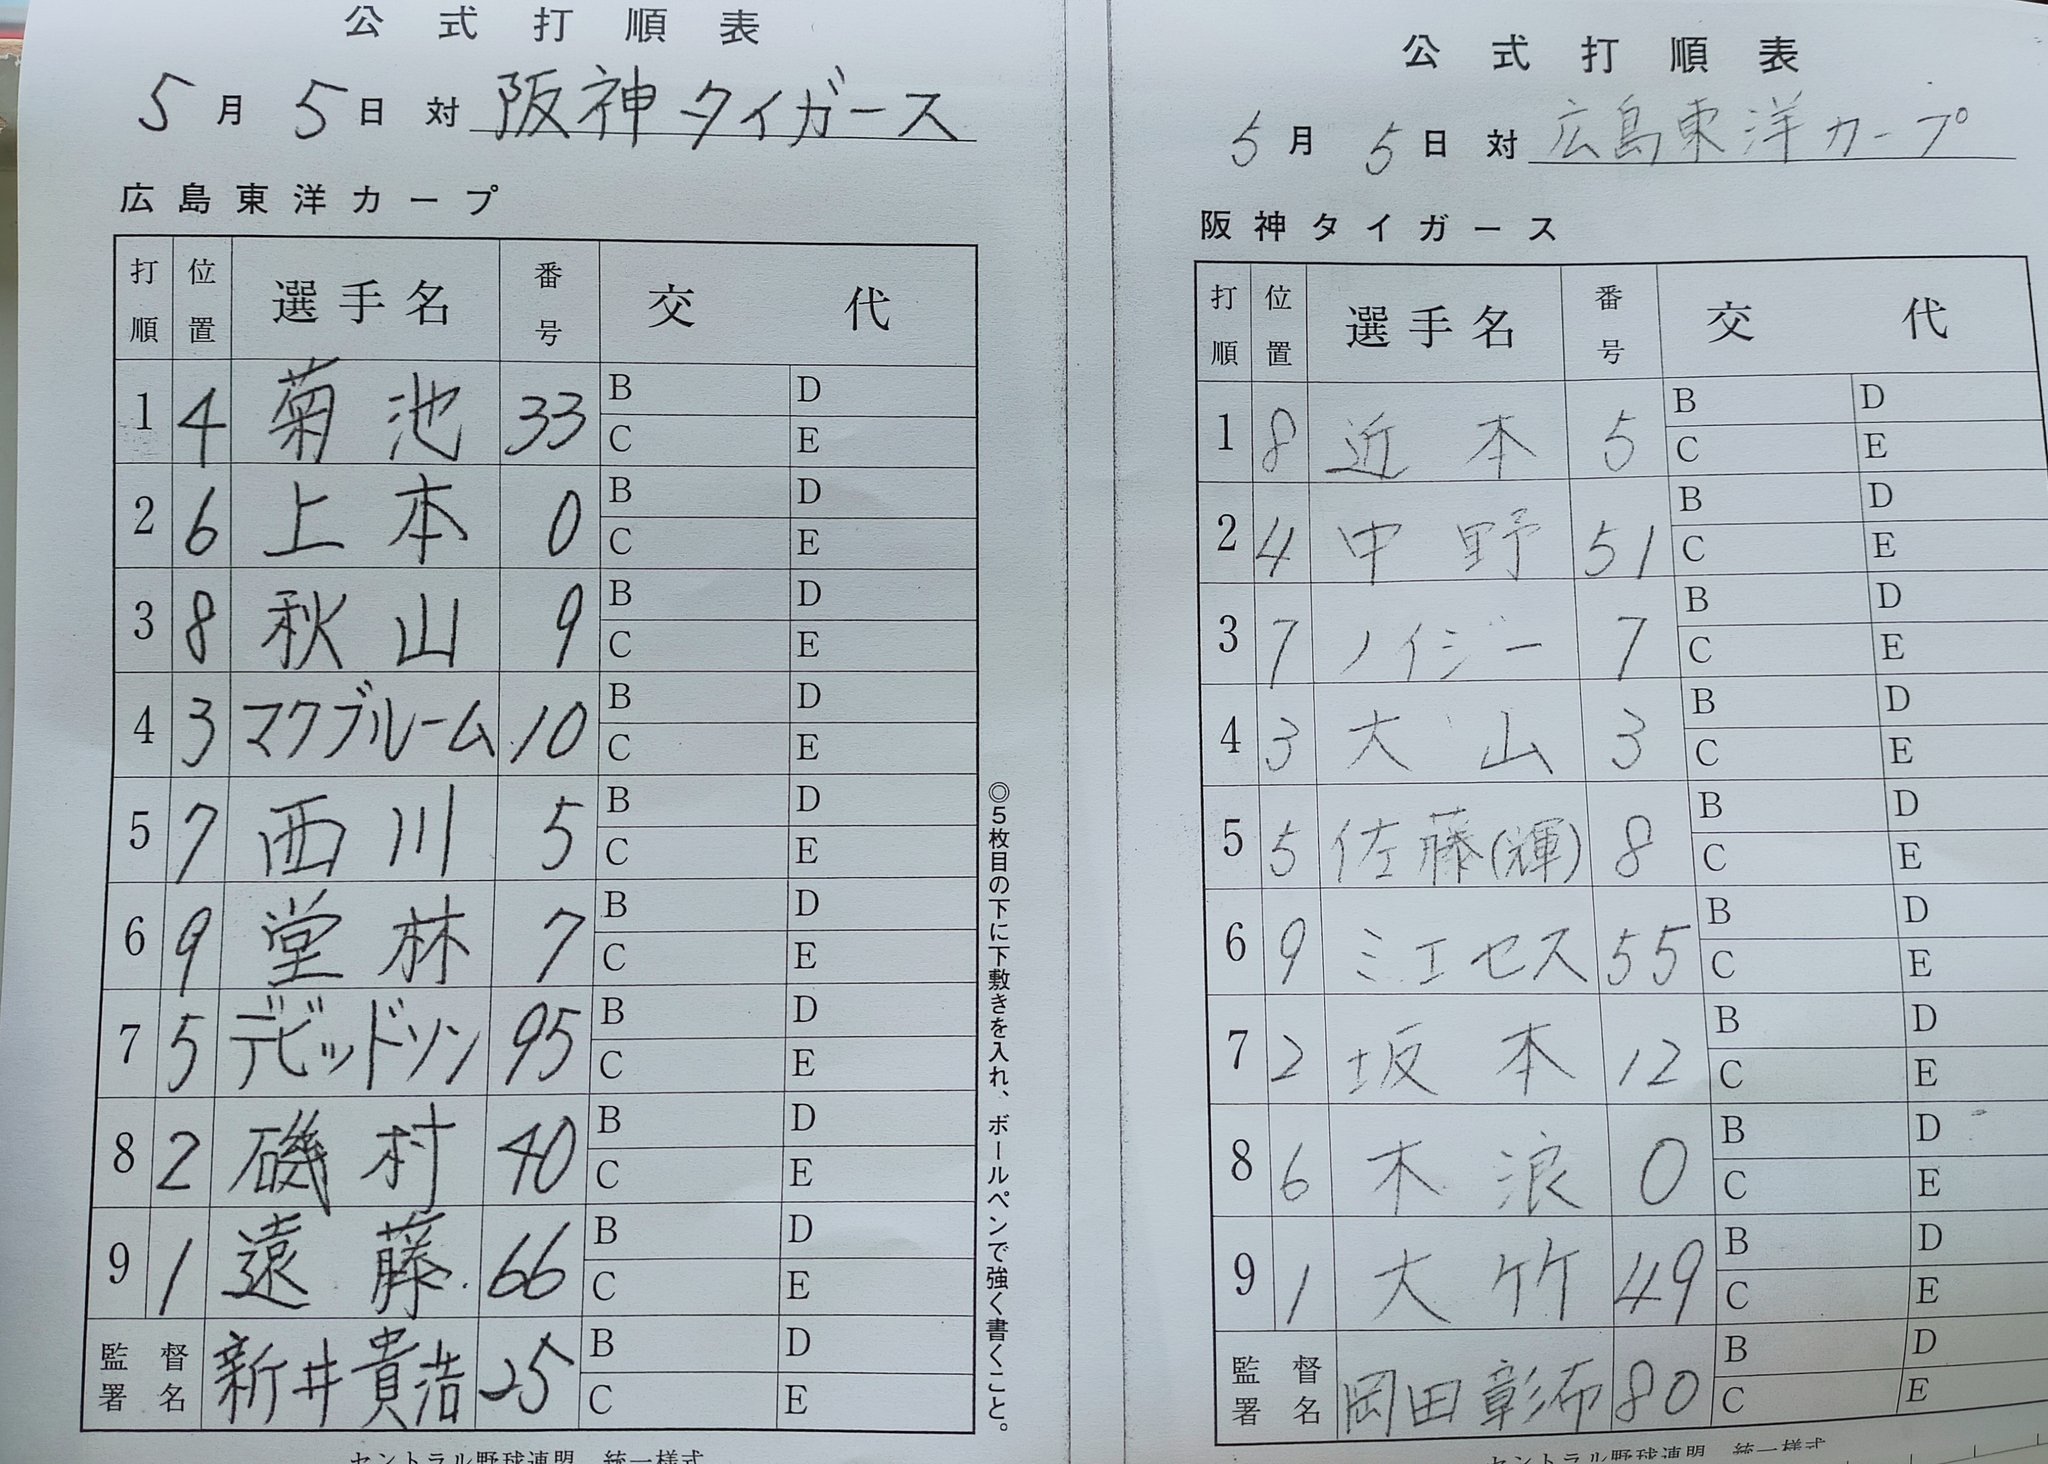 公式打順表
5月5日 対 阪神タイガース
広島東洋カープ
打順 位置 選手名 番号 交代
1 4 菊池 33 B D
C E
2 6 上本 0 B D
C E
3 8 秋山 9 B D
C E
4 3 マクブルーム 10 B D
C E
5 7 西川 5 B D
C E
6 9 堂林 7 B D
C E
7 5 デビッドソン 95 B D
C E
8 2 磯村 40 B D
C E
9 1 遠藤 66 B D
C E
監督署名 新井貴浩 25 B D
C E
◎5枚目の下に下敷きを入れ、ボールペンで強く書くこと。
セントラル野球連盟 統一様式
公式打順表
5月5日 対 広島東洋カープ
阪神タイガース
打順 位置 選手名 番号 交代
1 8 近本 5 B D
C E
2 4 中野 51 B D
C E
3 7 ノイジー 7 B D
C E
4 3 大山 3 B D
C E
5 5 佐藤(輝) 8 B D
C E
6 9 ミエセス 55 B D
C E
7 2 坂本 12 B D
C E
8 6 木浪 0 B D
C E
9 1 大竹 49 B D
C E
監督署名 岡田彰布 80 B D
C E
セントラル野球連盟 統一様式